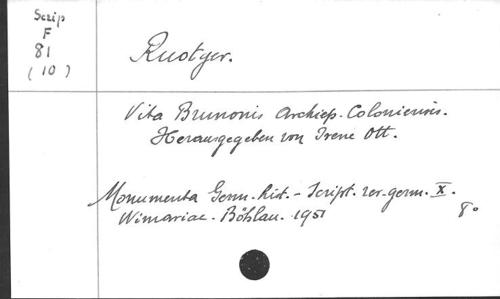 Scrip
F
81
(10)
Ruotger.
Vita Brunonis Archiep. Coloniensis.
Herausgegeben von Irene Ott.
Monumenta Germ. hist. - Script. rer. germ. X.
Wimariae. Böhlau. 1951
8°